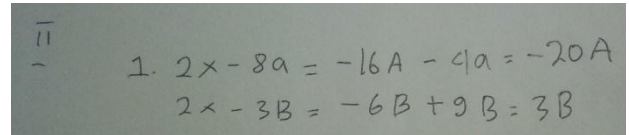 II
1. 2x - 8a = -16A - 4a = -20A
2x - 3B = -6B + 9B = 3B